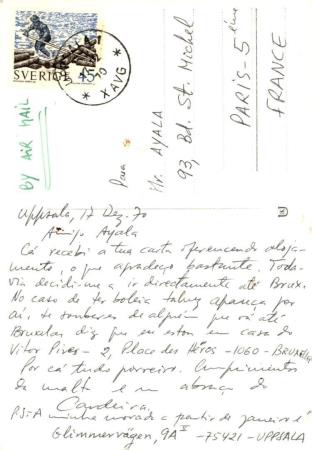 BY AIR MAIL
SVERIGE 45
UPPSALA
70
* AVG *
Para
Mr. AYALA
93, Bd. St. Michel
PARIS - 5ème
FRANCE
Uppsala, 17 Dez. 70
Amigo Ayala
Cá recebi a tua carta oferecendo aloja-
mento, o que agradeço bastante. Toda-
via decidi-me a ir directamente até Brux.
No caso de ter boleia talvez apareça por
aí, se souberes de alguém que vá até
Bruxelas diz que eu estou em casa do
Vitor Pires - 2, Place des Héros - 1060 - BRUXELAS
Por cá tudo porreiro. Cumprimentos
da malta e um abraço do
Candeira
P.S. - A minha morada a partir de janeiro é
Glimmervägen, 9A II - 75421 - UPPSALA